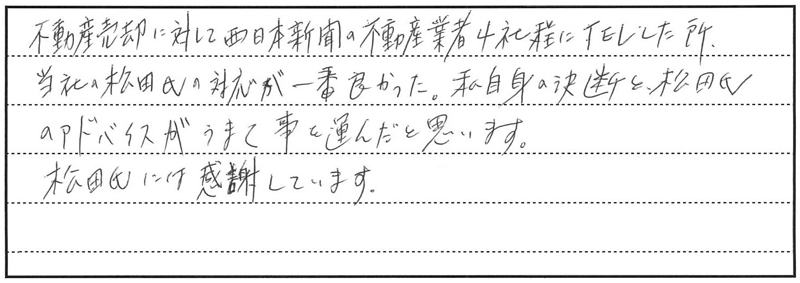 不動産売却に対して西日本新聞の不動産業者4社程にTELした所、
当社の松田氏の対応が一番良かった。私自身の決断と、松田氏
のアドバイスがうまく事を運んだと思います。
松田氏には感謝しています。